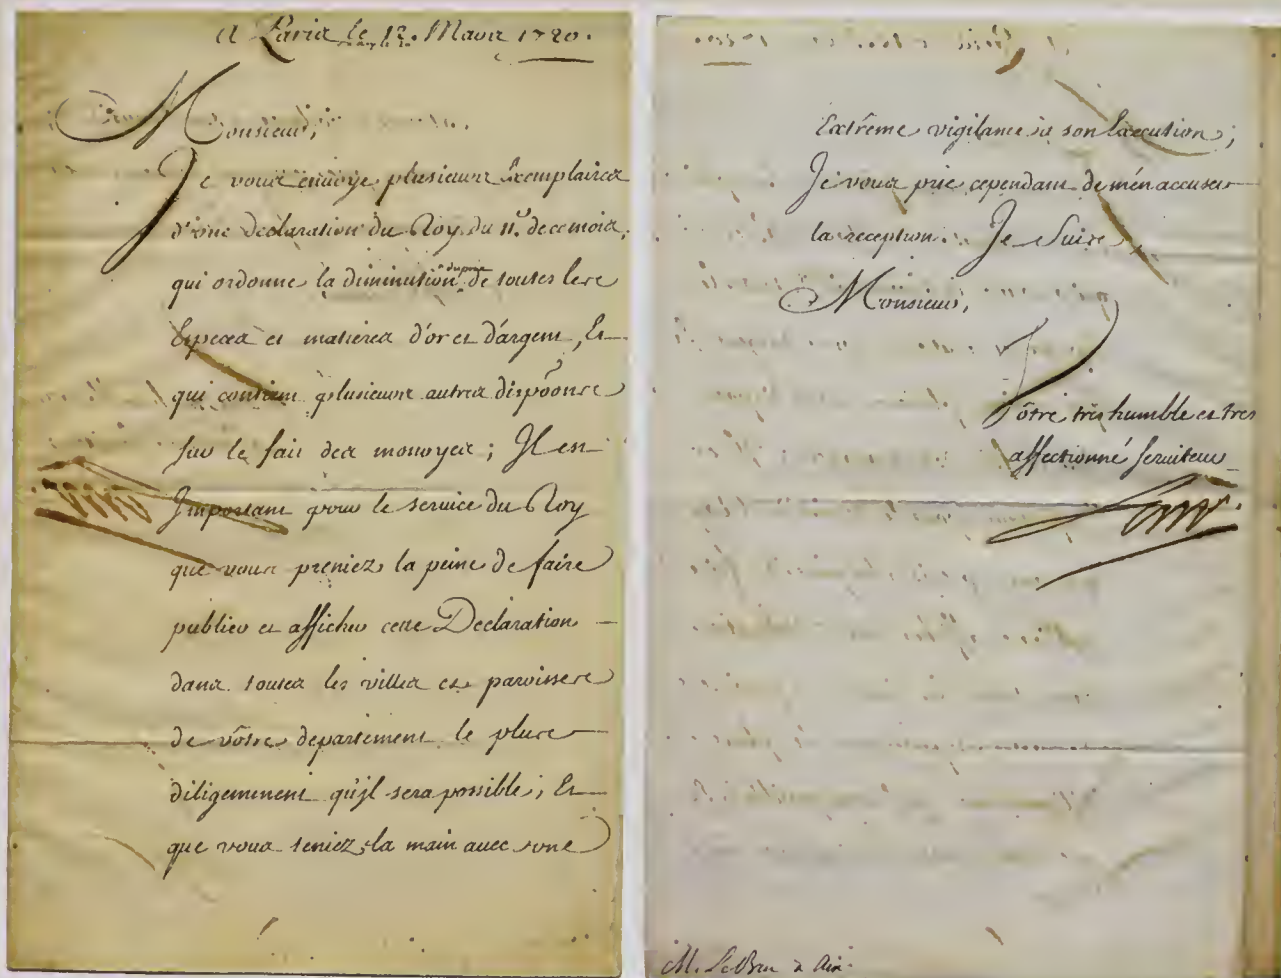 A Paris le 12. Mars 1720.
Monsieur,
Je vous envoye plusieurs Exemplaires
d'une declaration du Roy du 11.e de ce mois,
qui ordonne la diminution du prix de toutes les
Especes et matieres d'or et d'argent, Et
qui contient plusieurs autres dispõons
sur le fait des monoyes; Il est
Important pour le service du Roy
que vous preniez la peine de faire
publier et afficher cette Declaration
dans toutes les villes et paroisses
de vôtre departement le plus
diligemment qu'jl sera possible; Et
que vous teniez la main avec une
Extrême vigilance à son Execution;
Je vous prie cependant de m'en accuser
la reception. Je Suis,
Monsieur,
Vôtre tres humble et tres
affectionné serviteur
Law
M. LeBret à Aix.